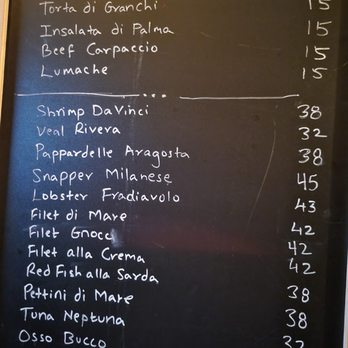 Torta di Granchi 15
Insalata di Palma 15
Beef Carpaccio 15
Lumache 15
Shrimp DaVinci 38
Veal Rivera 32
Pappardelle Aragosta 38
Snapper Milanese 45
Lobster Fradiavolo 43
Filet di Mare 42
Filet Gnocc 42
Filet alla Crema 42
Red Fish alla Sarda 42
Pettini di Mare 38
Tuna Neptuna 38
Osso Bucco 32